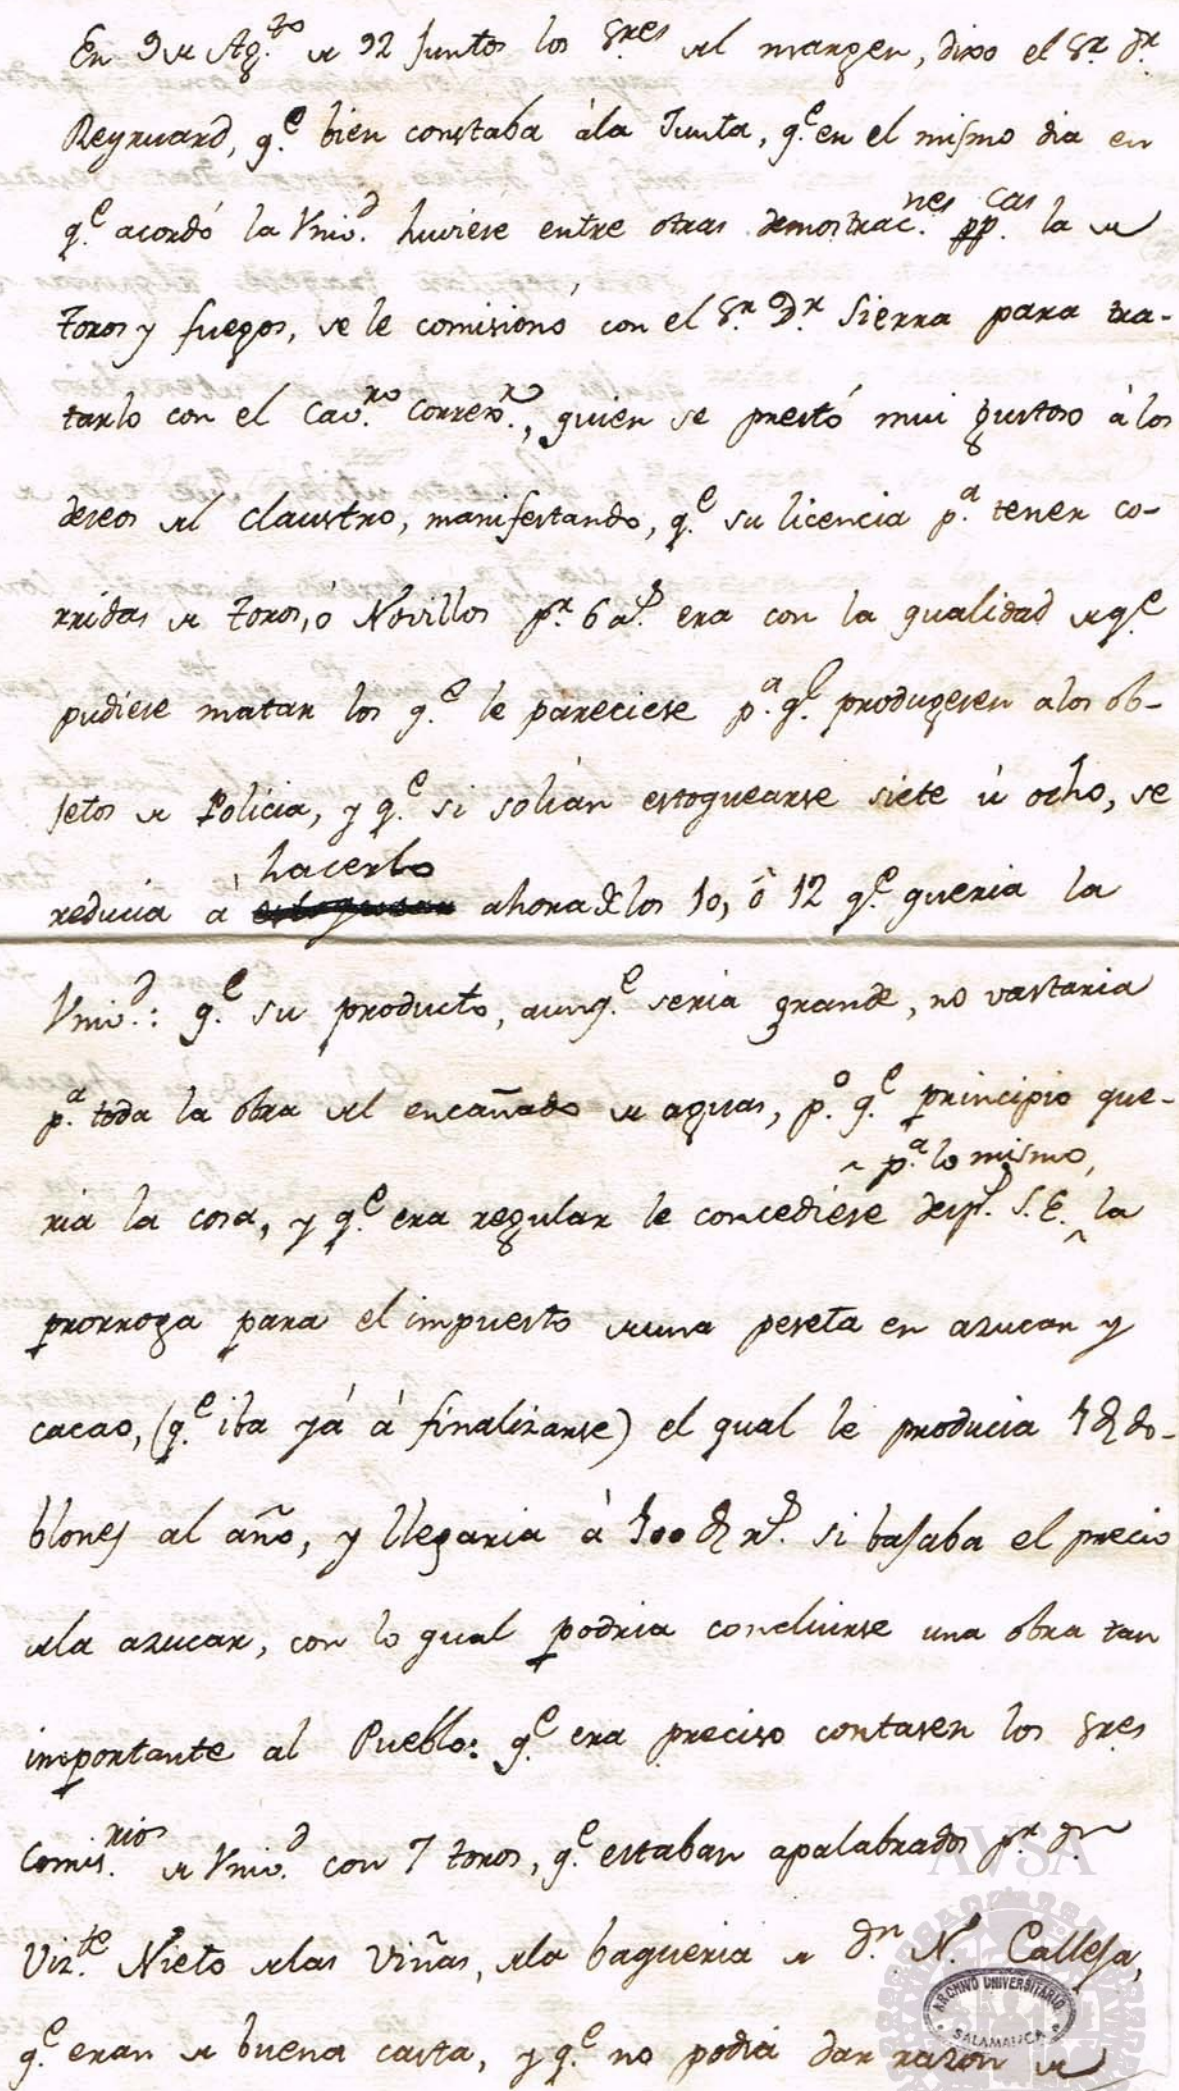 En 9 de Ag.to de 92 juntos los Sres del margen, dixo el Sr. Dr.
Reyruard, q.e bien constaba à la Junta, q.e en el mismo dia en
q.e acordó la Vniv.d huviese entre otras demostrac.nes pp.cas la de
toros y fuegos, se le comisionó con el Sr. Dr. Sierra para tra-
tarlo con el Cav.ro Correx.r, quien se prestó mui gustoso à los
deseos del claustro, manifestando, q.e su licencia p.a tener co-
rridas de toros, ó Novillos p.r 6 a.s era con la qualidad de q.e
pudiese matar los q.e le pareciese p.a q.e produgesen a los ob-
jetos de Policia, y q.e si solian estoquearse siete ù ocho, se
hacerlo
reducia à ahora de los 10, ò 12 q.e queria la
Vniv.d: q.e su producto, aunq.e seria grande, no vastaria
p.a toda la obra del encañado de aguas, p.o q.e principio que-
^ p.a lo mismo,
ria la cosa, y q.e era regular le concediese desp.s S.E. ^ la
prorroga para el impuesto de una peseta en azucar y
cacao, (q.e iba yá à finalizarse) el qual le producia 1 do-
blones al año, y llegaria à 100 r.s si bajaba el precio
de la azucar, con lo qual podria concluirse una obra tan
importante al Pueblo: q.e era preciso contasen los Sres
Comis.rios de Vniv.d con 7 toros, q.e estaban apalabrados p.r Dn.
Viz.te Nieto de las Viñas, de la baqueria de D.n N. Calleja,
q.e eran de buena casta, y q.e no podia dar razon de
AVSA
ARCHIVO UNIVERSITARIO
SALAMANCA